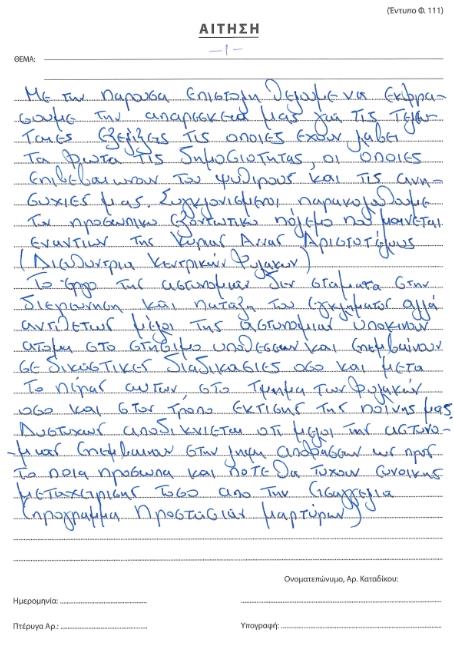 (Έντυπο Φ. 111)
ΑΙΤΗΣΗ
-1-
ΘΕΜΑ:
Με την παρουσα επιστολη θελουμε να εκφρα-
σουμε την απαρεσκεια μας για τις τελευ-
ταιες εξελιξεις τις οποιες εχουν λαβει
τα φωτα τις δημοσιοτητας, οι οποιες
επιβεβαιωνουν του ψυθιρους και τις ανη-
συχιες μας. Συγκλονισμενοι παρακολουθουμε
τον προσωπικο εξοντωτικο πολεμο που μαινεται
εναντιων της κυριας Αννας Αριστοτελους
(Διευθυντρια Κεντρικών Φυλακων)
Το εργο της αστυνομιας δεν σταματα στην
διερευνηση και παταξη του εγκληματος αλλά
αντιθετως μελοι της αστυνομιας υποκινουν
ατομα στο στησιμο υποθεσεων και επεμβαινουν
σε δικαστικες διαδικασιες οσο και μετα
το περας αυτων, στο Τμημα των Φυλακών
οσο και στον τροπο εκτισης της ποινης μας.
Δυστυχως αποδικνιεται οτι μελοι της αστυνο-
-μιας επεμβαινουν στην ληψη αποφασεων ως προς
το ποια προσωπα και ποτε θα τυχουν ευνοικης
μεταχειρισης τοσο απο την εισαγγελια
(προγραμμα Προστασιας μαρτύρων)
Ονοματεπώνυμο, Αρ. Καταδίκου:
Ημερομηνία:
Πτέρυγα Αρ.:
Υπογραφή: